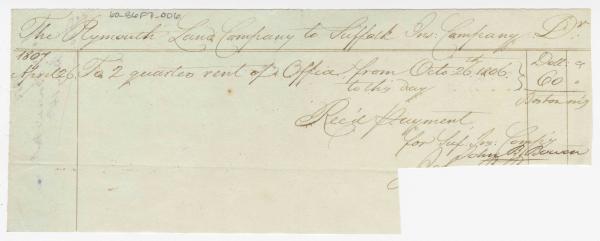 60-8687-006
The Plymouth Land Company to Suffolk Ins. Company Dr.
1807 Doll: c
April 26 To 2 quarters rent of Office from Octo 26th 1806. 60 "
to this day
Boston
Rec'd Payment
for Suf. Ins. Comp'y
John B. Bowen